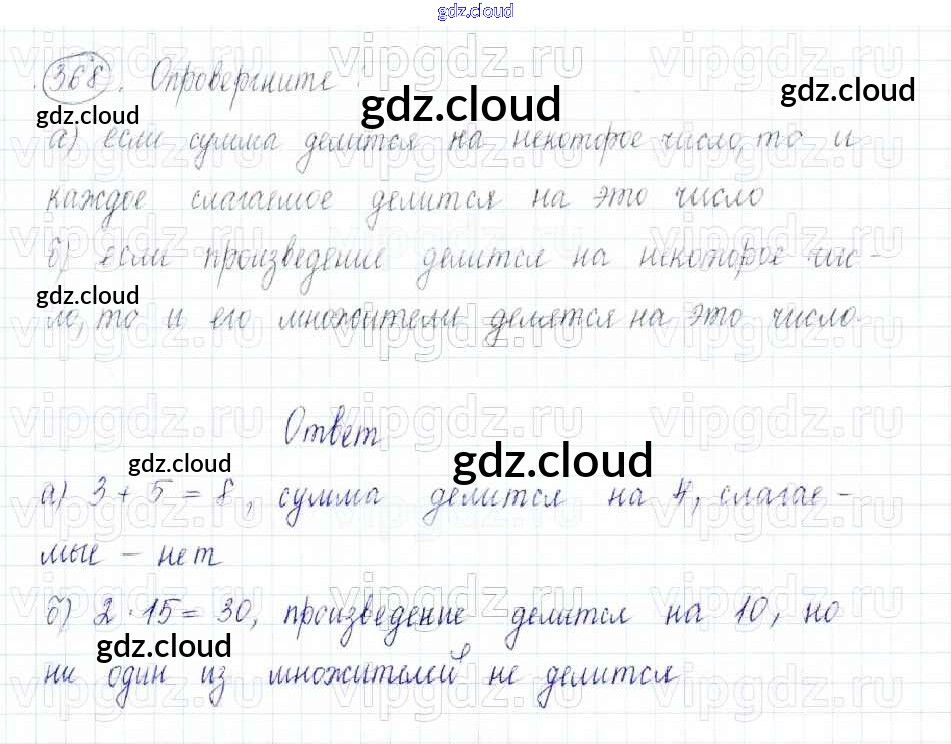 gdz.cloud
368. Опровергните :
а) если сумма делится на некоторое число, то и
каждое слагаемое делится на это число
б) если произведение делится на некоторое чис-
ло, то и его множители делятся на это число.
Ответ
а) 3 + 5 = 8, сумма делится на 4, слагае-
мые - нет
б) 2 · 15 = 30, произведение делится на 10, но
ни один из множителей не делится
gdz.cloud
gdz.cloud
gdz.cloud
gdz.cloud
gdz.cloud
gdz.cloud
gdz.cloud
gdz.cloud
vipgdz.ru